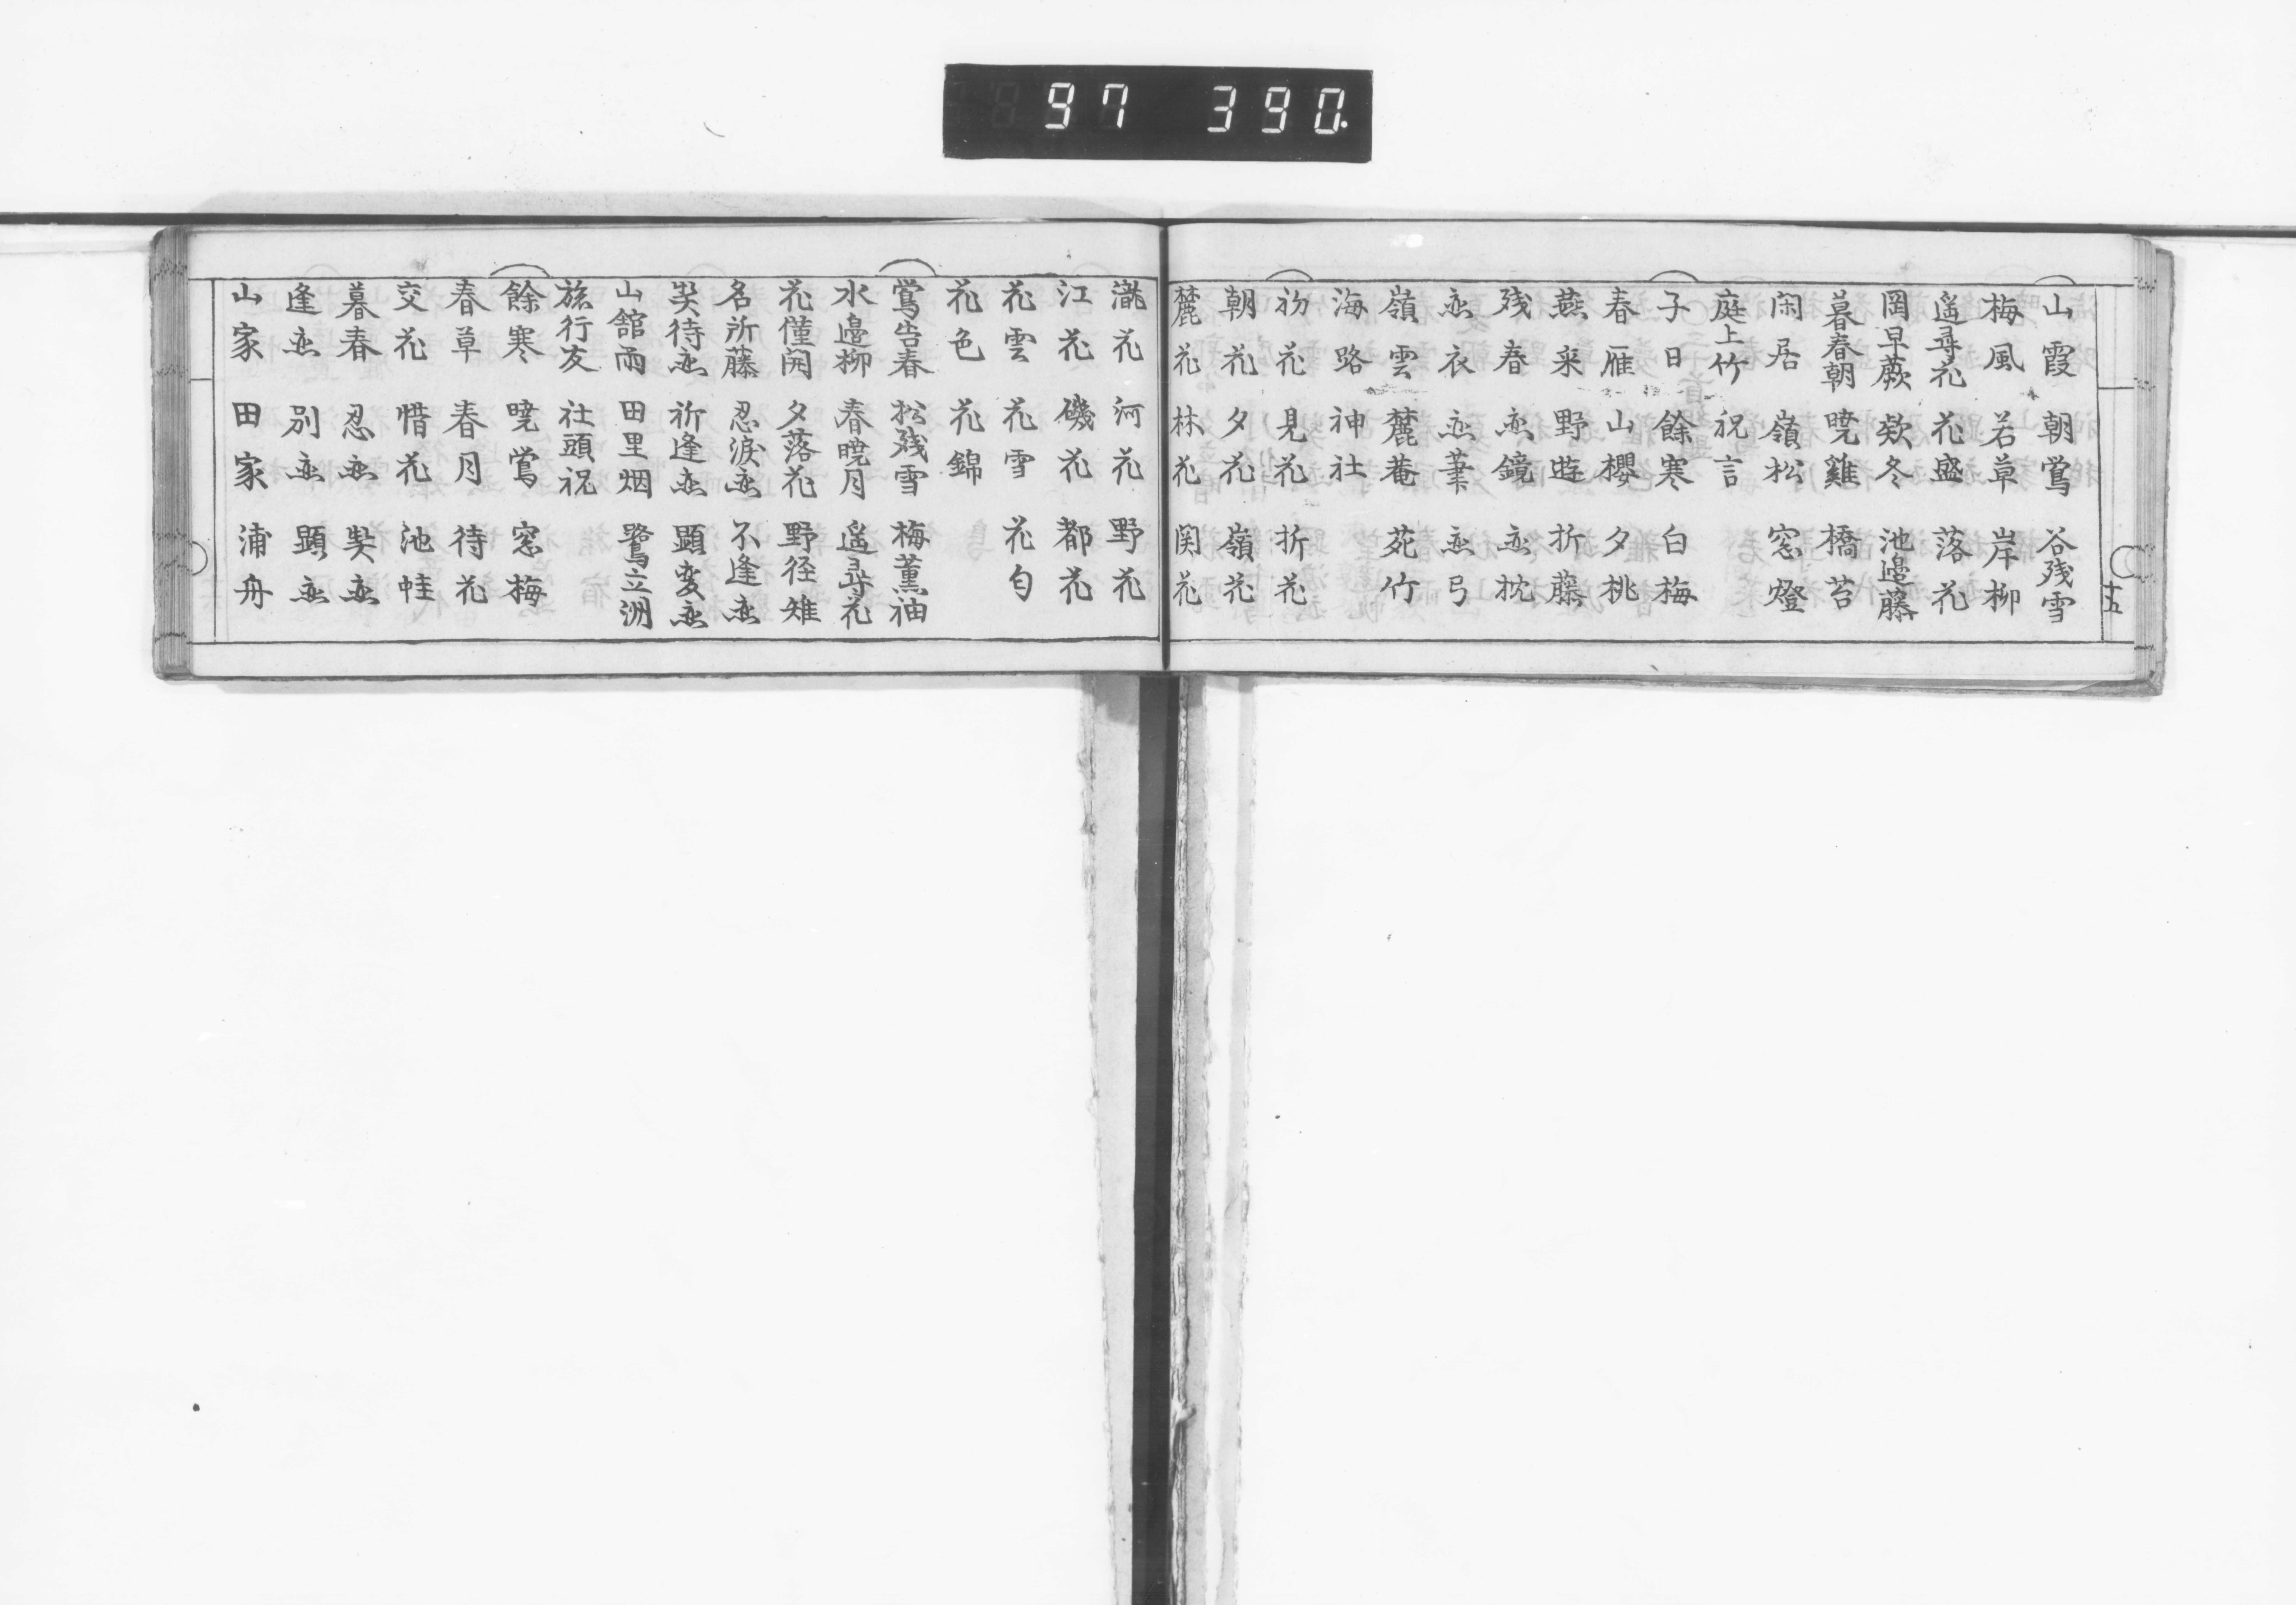 97 390.
山霞 朝鶯 谷残雪
梅風 若草 岸柳
遥尋花 花盛 落花
岡早蕨 欵冬 池邊藤
暮春朝 暁雞 橋苔
閑居 嶺松 窓燈
庭上竹 祝言
子日 餘寒 白梅
春雁 山櫻 夕桃
燕来 野遊 折藤
残春 恋鏡 恋枕
恋衣 恋筆 恋弓
嶺雲 麓菴 苑竹
海路 神社
初花 見花 折花
朝花 夕花 嶺花
麓花 林花 関花
十五
瀧花 河花 野花
江花 磯花 都花
花雲 花雪 花匂
花色 花錦
鶯告春 松残雪 梅薫袖
水邊柳 春暁月 遥尋花
花僅開 夕落花 野径雉
名所藤 忍涙恋 不逢恋
契待恋 祈逢恋 顕変恋
山舘雨 田里烟 鷺立洲
旅行友 社頭祝
餘寒 暁鶯 窓梅
春草 春月 待花
交花 惜花 池蛙
暮春 忍恋 契恋
逢恋 別恋 顕恋
山家 田家 浦舟